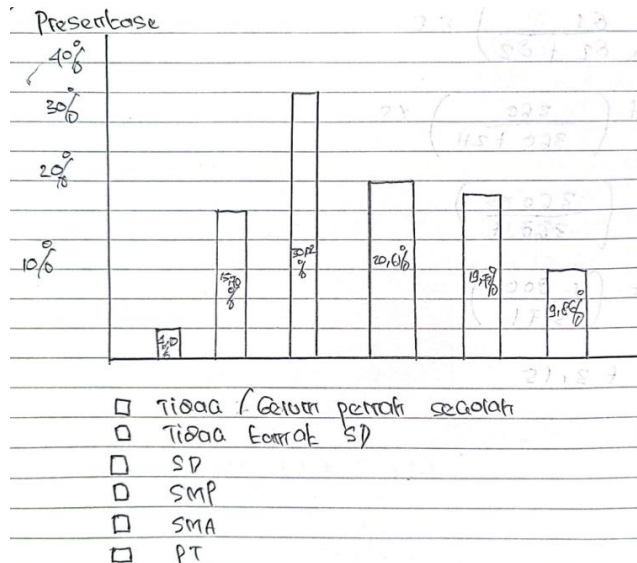 Presentase
40%
30%
20%
10%
15,70 %
30,12 %
20,61%
19,70%
9,86%
Tidak / Belum pernah sekolah
Tidak tamat SD
SD
SMP
SMA
PT